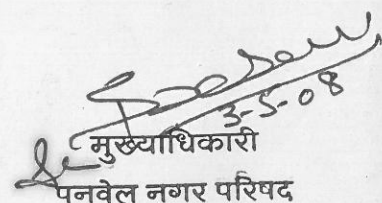 3-5-08
मुख्याधिकारी
पनवेल नगर परिषद